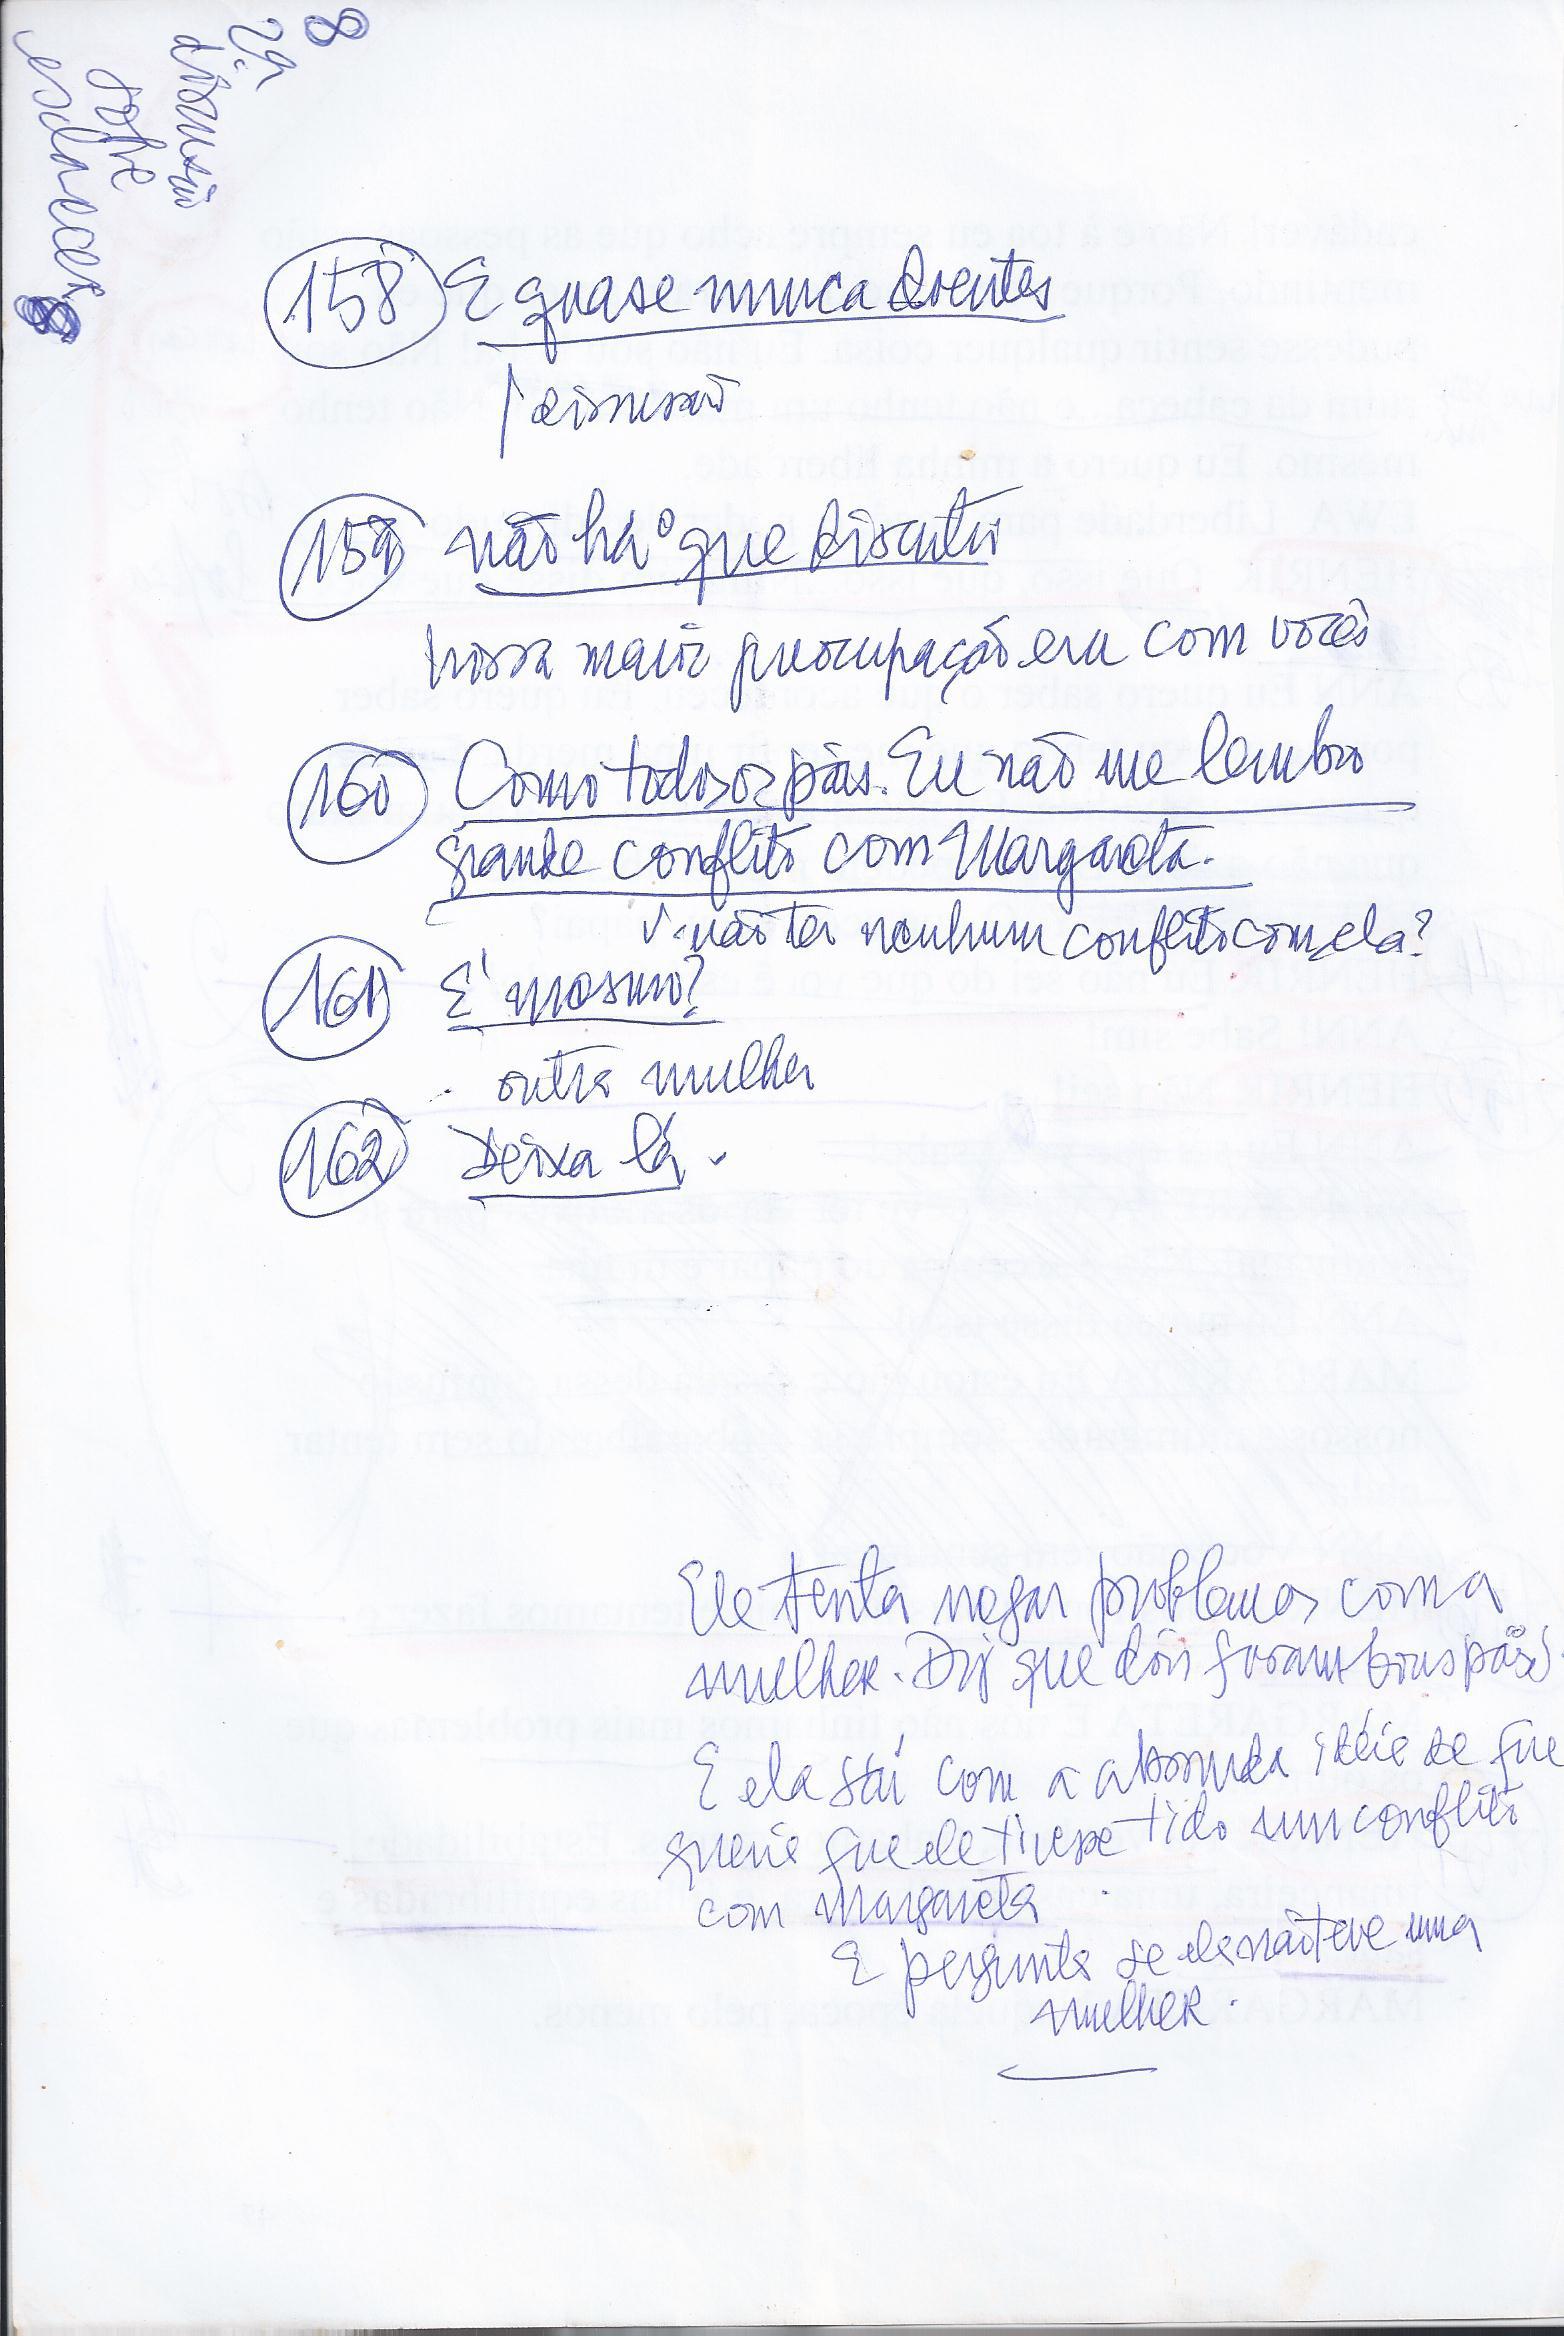 8
2ª
discussão
sobre
esclarecer
8
158 E quase nunca doentes
discussão
159 não há o que discutir
nossa maior preocupação era com vocês
160 Como todos os pais. Eu não me lembro
grande conflito com Margareta.
V. não ter nenhum conflito com ela?
161 É mesmo?
outra mulher
162 Deixa lá.
Ele tenta negar problemas com a
mulher. Diz que dois foram bons pais.
E ela sai com a absurda idéia de que
queria que ele tivesse tido um conflito
com Margareta
E pergunta se ele não teve uma
mulher.